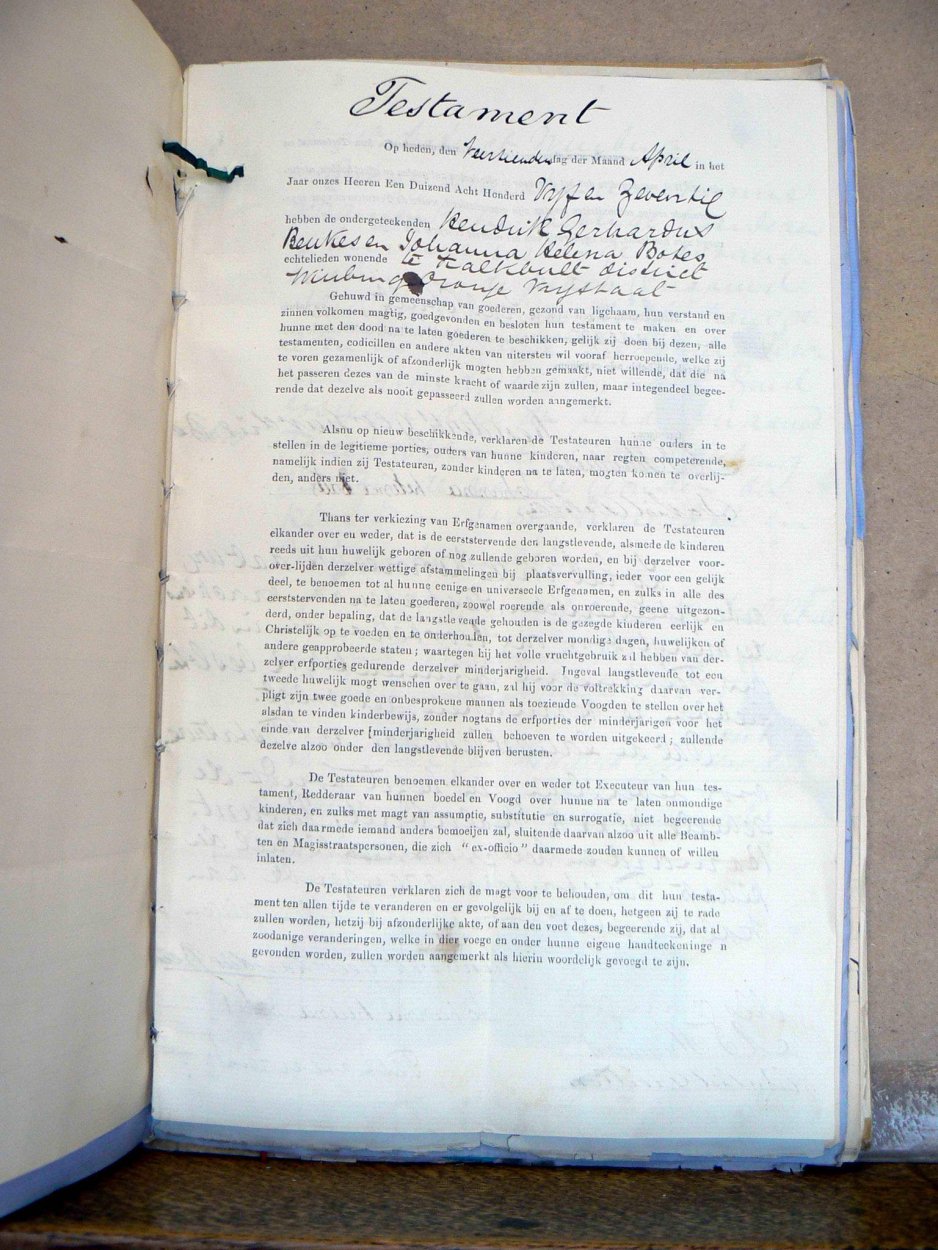 Testament
Op heden, den Veertienden dag der Maand April in het
Jaar onzes Heeren Een Duizend Acht Honderd Vyf en Zeventig
hebben de ondergeteekenden Hendrik Gerhardus
Beukes en Johanna Helena Botes
echtelieden wonende te Kalkbult district
Oranje Vrystaat
Gehuwd in gemeenschap van goederen, gezond van ligchaam, hun verstand en
zinnen volkomen magtig, goedgevonden en besloten hun testament te maken en over
hunne met den dood na te laten goederen te beschikken, gelijk zij doen bij dezen, alle
testamenten, codicillen en andere akten van uitersten wil vooraf herroepende, welke zij
te voren gezamenlijk of afzonderlijk mogten hebben gemaakt, niet willende, dat die na
het passeren dezes van de minste kracht of waarde zijn zullen, maar integendeel begee-
rende dat dezelve als nooit gepasseerd zullen worden aangemerkt.
Alsnu op nieuw beschikkende, verklaren de Testateuren hunne ouders in te
stellen in de legitieme porties, ouders van hunne kinderen, naar regten competerende,
namelijk indien zij Testateuren, zonder kinderen na te laten, mogten komen te overlij-
den, anders niet.
Thans ter verkiezing van Erfgenamen overgaande, verklaren de Testateuren
elkander over en weder, dat is de eerststervende den langstlevende, alsmede de kinderen
reeds uit hun huwelijk geboren of nog zullende geboren worden, en bij derzelver voor-
over-lijden derzelver wettige afstammelingen bij plaatsvervulling, ieder voor een gelijk
deel, te benoemen tot al hunne eenige en universeele Erfgenamen, en zulks in alle des
eerststervenden na te laten goederen, zoowel roerende als onroerende, geene uitgezon-
derd, onder bepaling, dat de langstlevende gehouden is de gezegde kinderen eerlijk en
Christelijk op te voeden en te onderhouden, tot derzelver mondige dagen, huwelijken of
andere geapprobeerde staten; waartegen hij het volle vruchtgebruik zal hebben van der-
zelver erfporties gedurende derzelver minderjarigheid. Ingeval langstlevende tot een
tweede huwelijk mogt wenschen over te gaan, zal hij voor de voltrekking daarvan ver-
pligt zijn twee goede en onbesprokene mannen als toeziende Voogden te stellen over het
alsdan te vinden kinderbewijs, zonder nogtans de erfporties der minderjarigen voor het
einde van derzelver [minderjarigheid zullen behoeven te worden uitgekeerd; zullende
dezelve alzoo onder den langstlevende blijven berusten.
De Testateuren benoemen elkander over en weder tot Executeur van hun tes-
tament, Redderaar van hunnen boedel en Voogd over hunne na te laten onmondige
kinderen, en zulks met magt van assumptie, substitutie en surrogatie, niet begeerende
dat zich daarmede iemand anders bemoeijen zal, sluitende daarvan alzoo uit alle Beamb-
ten en Magisstraatspersonen, die zich "ex-officio" daarmede zouden kunnen of willen
inlaten.
De Testateuren verklaren zich de magt voor te behouden, om dit hun testa-
ment ten allen tijde te veranderen en er gevolgelijk bij en af te doen, hetgeen zij te rade
zullen worden, hetzij bij afzonderlijke akte, of aan den voet dezes, begeerende zij, dat al
zoodanige veranderingen, welke in dier voege en onder hunne eigene handteekeninge n
gevonden worden, zullen worden aangemerkt als hierin woordelijk gevoegd te zijn.